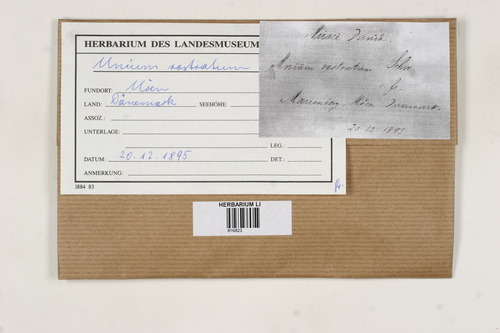 HERBARIUM DES LANDESMUSEUM
Mnium rostratum
FUNDORT: Möen
LAND: Dänemark SEEHÖHE:
ASSOZ.:
UNTERLAGE:
LEG.:
DATUM: 20.12.1895 DET.:
ANMERKUNG:
1884 83
Musci Danici.
Mnium rostratum Schr.
c. fr.
Marienborg Möen Danmark.
20.12.1895
HERBARIUM LI